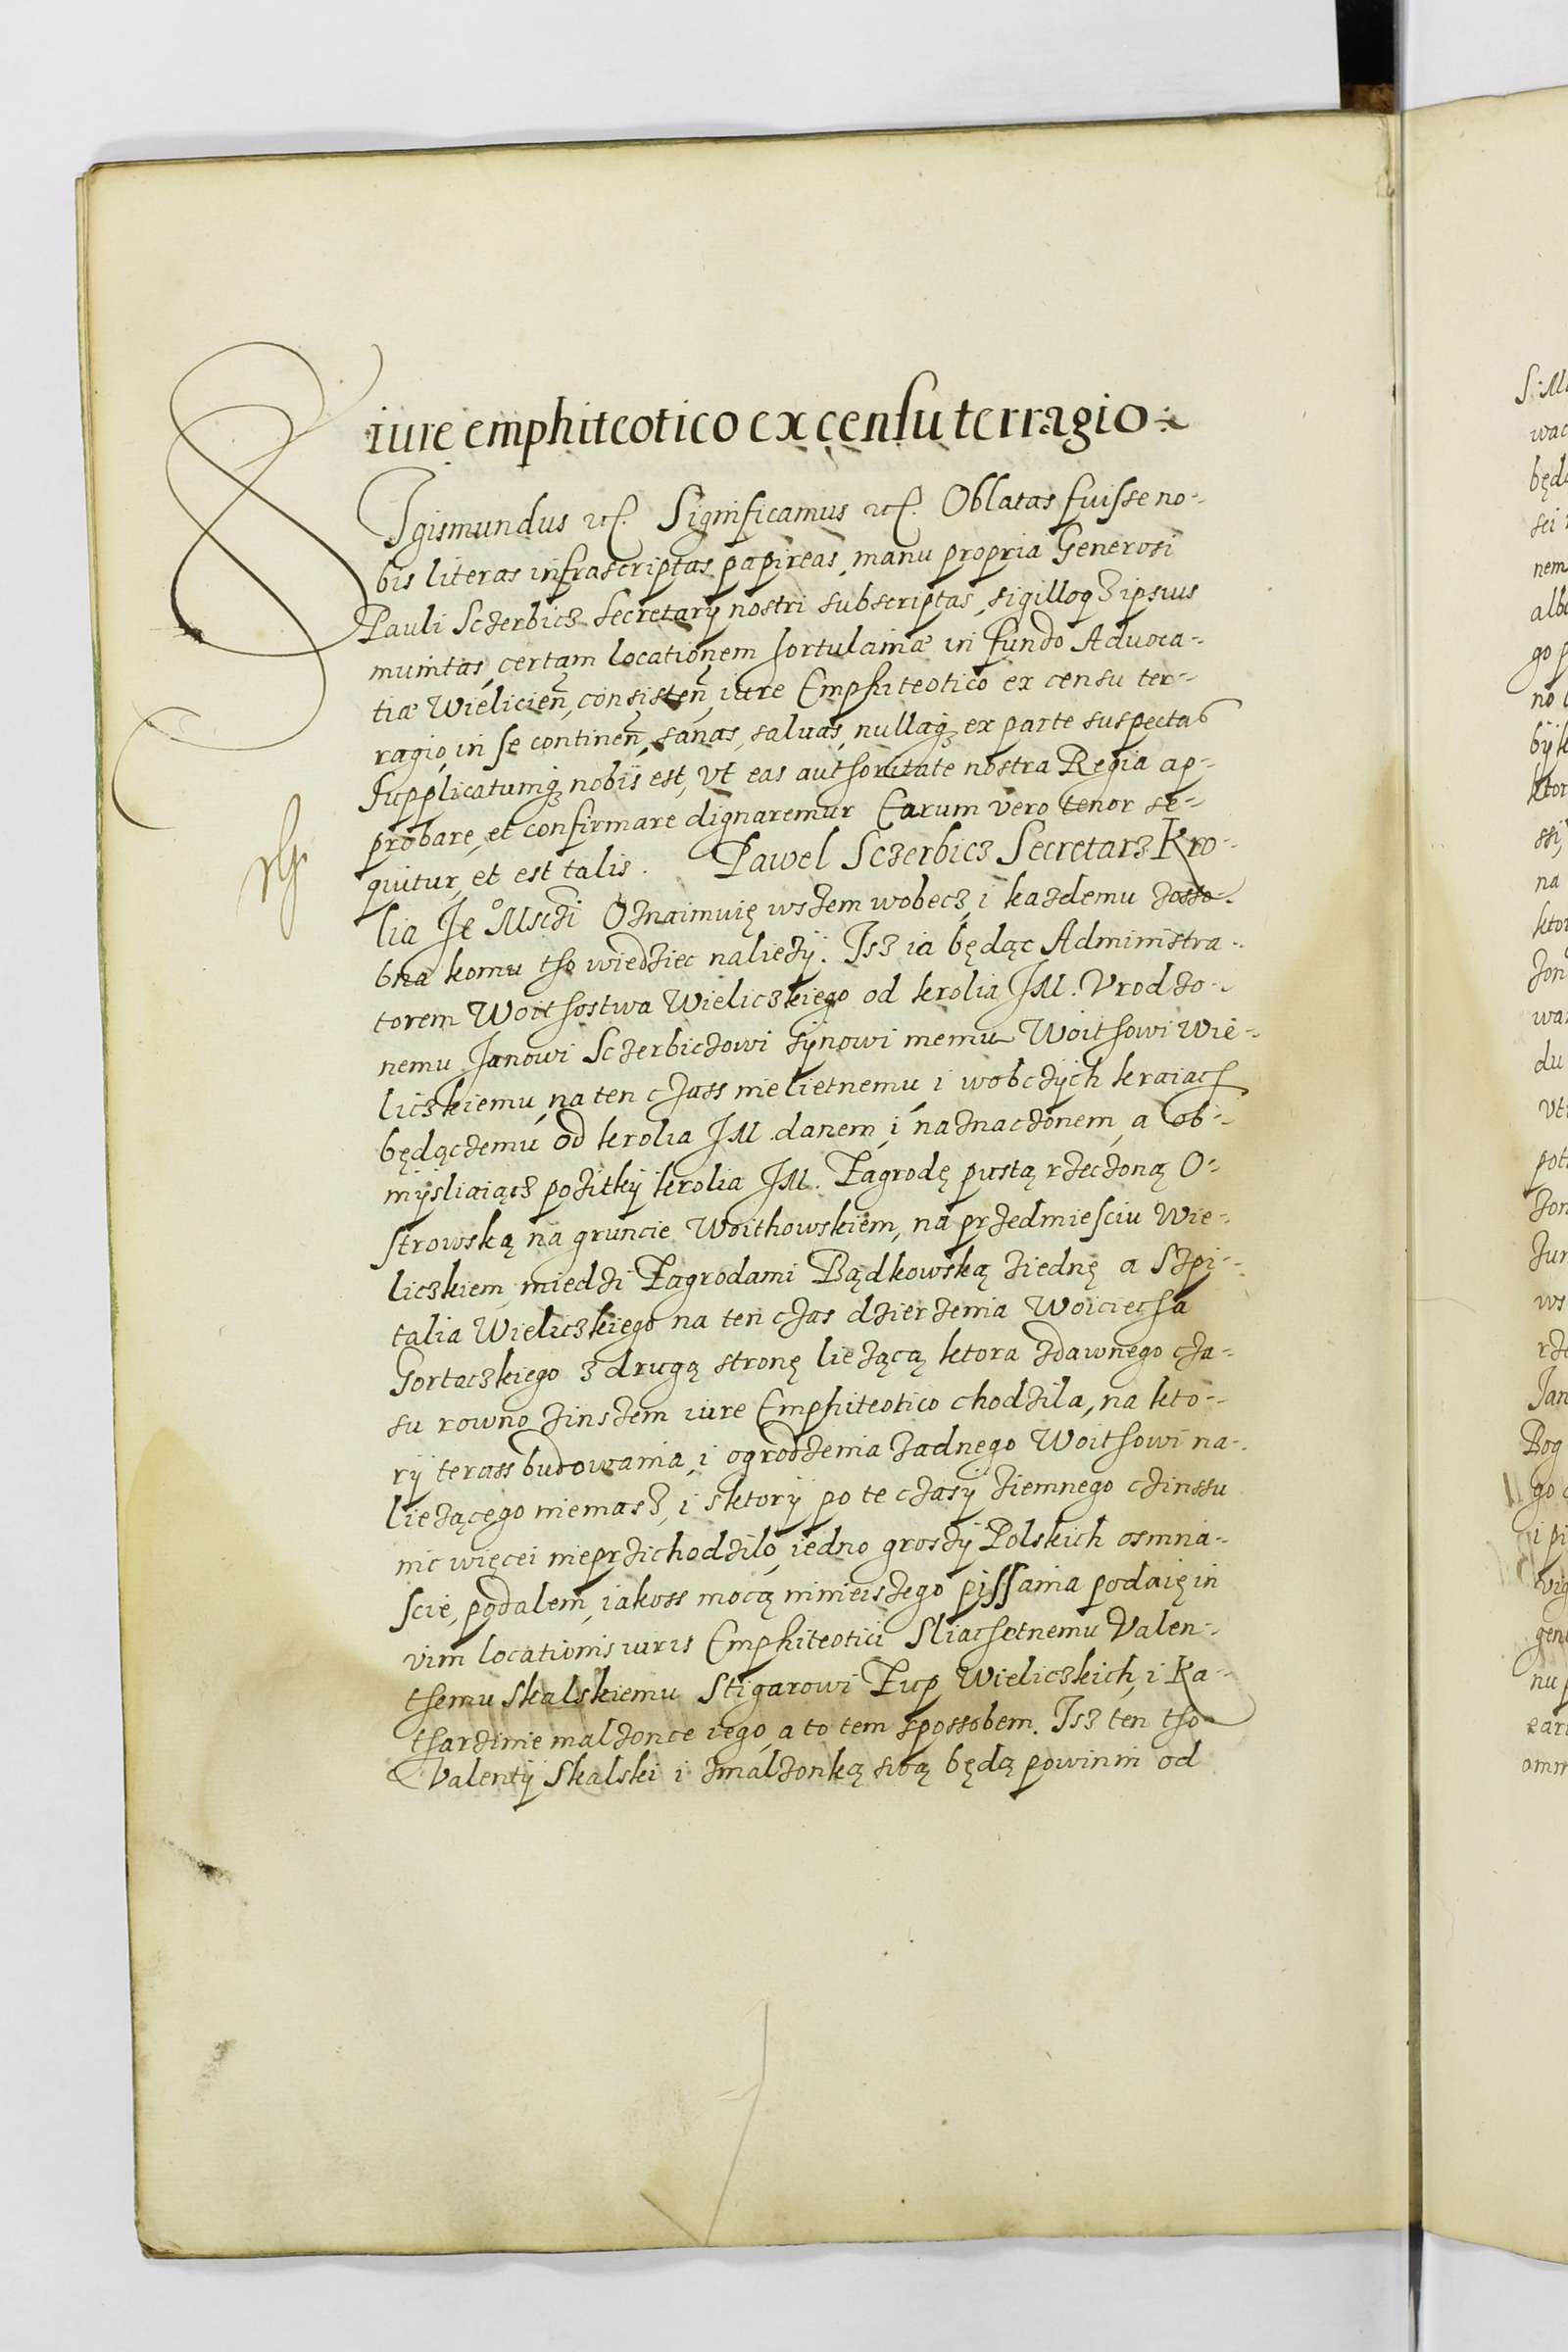 iure emphiteotico ex censu terragio
SIgismundus etc. Significamus etc. Oblatas fuisse no-
bis literas infrascriptas papireas, manu propria Generosi
Pauli Sczerbicz Secretarÿ nostri subscriptas, sigilloq3 ipsius
munitas, certam locationem hortulaniæ in fundo Advoca-
tiæ Wielicien̄, consisten̄, iure Emphiteotico ex censu ter-
ragio, in se continen̄, sanas, saluas, nullaq3 ex parte suspectas
Supplicatumq3 nobis est, vt eas authoritate nostra Regia ap-
probare, et confirmare dignaremur Earum vero tenor se-
quitur, et est talis. Pawel Sczerbicz Secretarz Kro-
lia Je° Msczi Oznaimuię wszem wobecz, i kazdemu zosso-
bna komu tho wiedziec naliezÿ. Isz ia będąc Administra-
torem Woithostwa Wieliczkiego od krolia JM. Vrodzo-
nemu Janowi Sczerbiczowi sÿnowi memu Woithowi Wie-
liczkiemu, na ten czass nielietnemu, i wobczÿch kraiach
będączemu od krolia JM. danem, i naznaczonem, a ob-
mÿsliaiącz pozitkÿ krolia JM. Zagrodę pustą rzeczoną O-
strowską na gruncie Woithowskiem, na przedmiesciu Wie-
liczkiem, miedzi Zagrodami Bądkowską ziednę a Szpi-
talia Wieliczkiego na ten czas dzierzenia Woiciecha
Gortaczkiego z drugą stronę liezącą ktora zdawnego cza-
su rowno zinszem iure Emphiteotico chodzila, na kto-
rÿ terass budowania, i ogrodzenia zadnego Woithowi na-
liezącego niemasz, i sktorÿ po te czasÿ ziemnego czinssu
nic więcei nieprzichodzilo, iedno groszÿ Polskich osmna-
scie, podalem, iakoss mocą ninieiszego pissania podaię in
vim locationis iuris Emphiteotici Sliachetnemu Valen-
themu Skalskiemu Stigarowi Zup Wieliczkich, i Ka-
tharzinie malzonce iego, a to tem spossobem. Isz ten tho
Valentÿ Skalski i zmalzonką swą będą powinni od